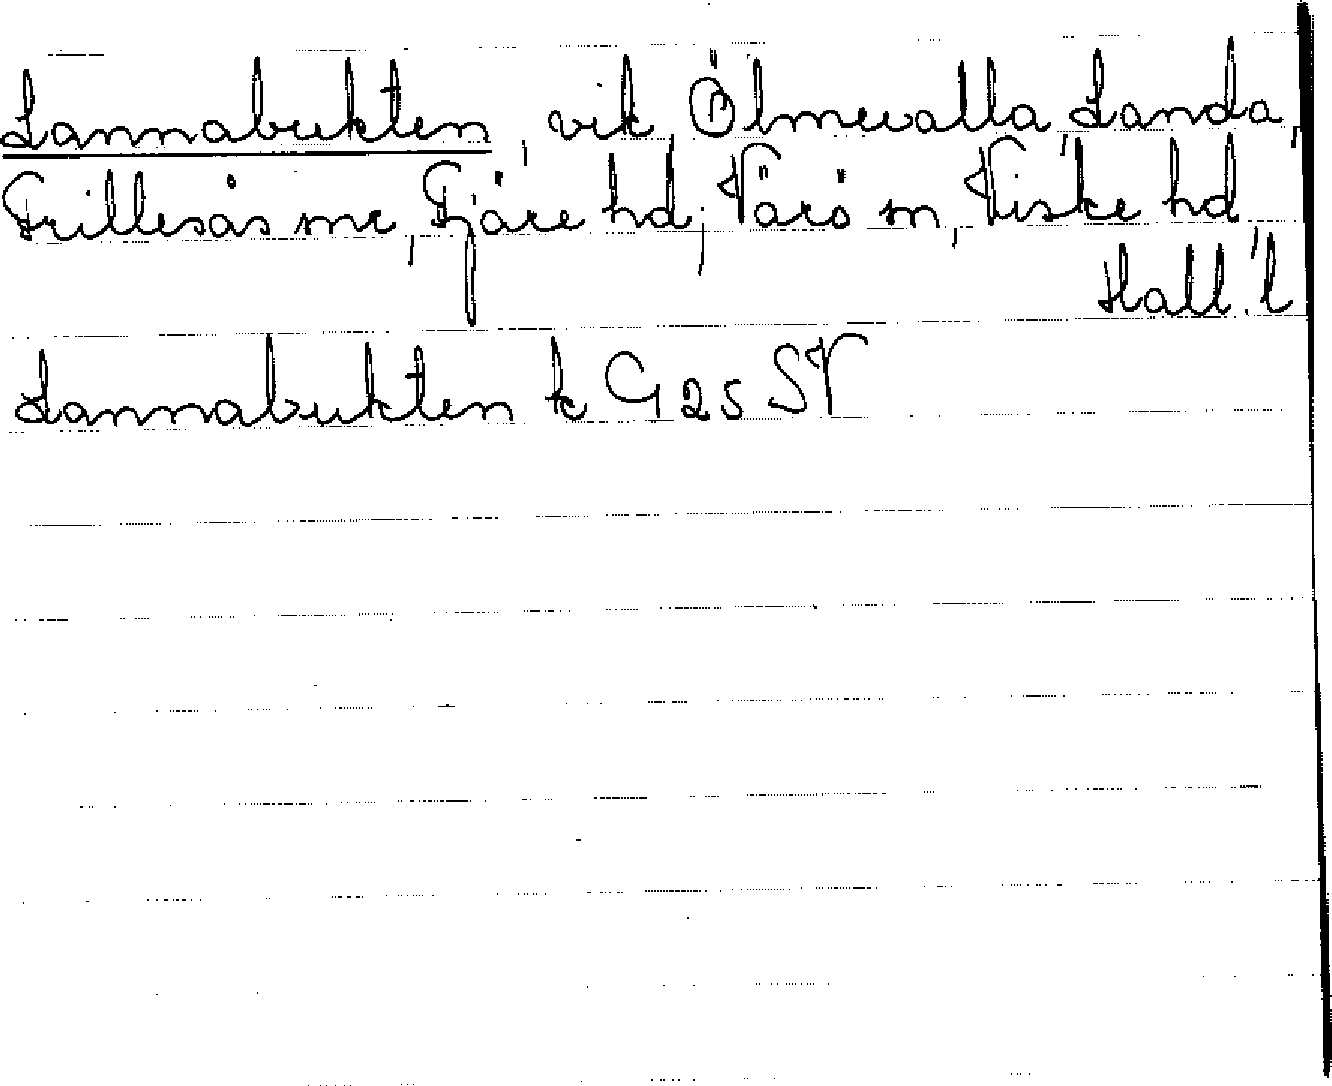 Lannabukten, vik, Ölmevalla, Landa,
Frillesås snr, Fjäre hd; Värö sn, Viske hd,
Hall. l
Lannabukten k G 25 SV